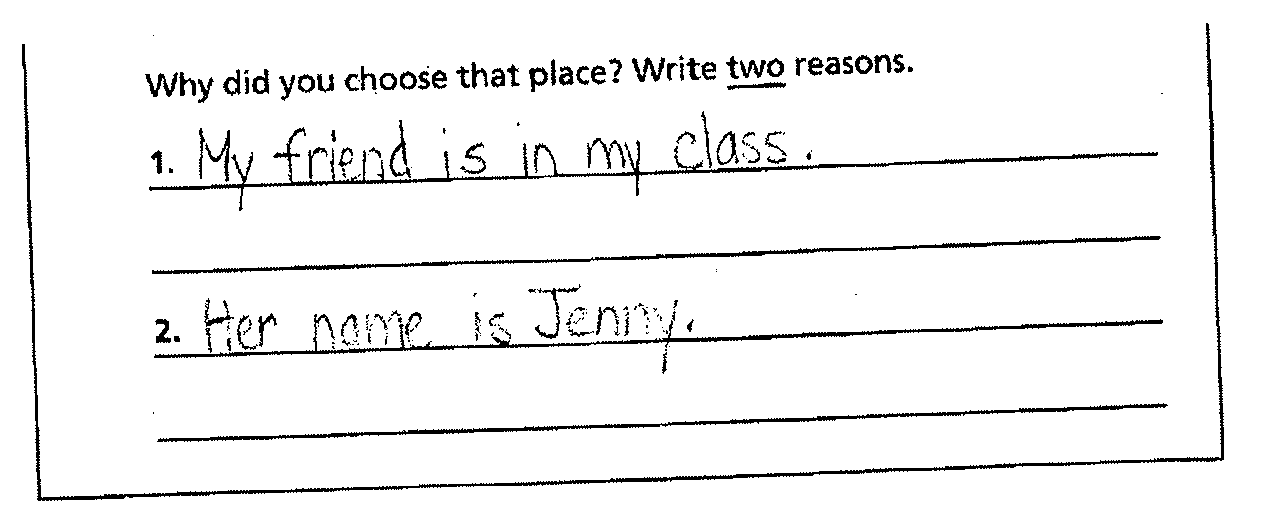 Why did you choose that place? Write two reasons.
1. My friend is in my class.
2. Her name is Jenny.